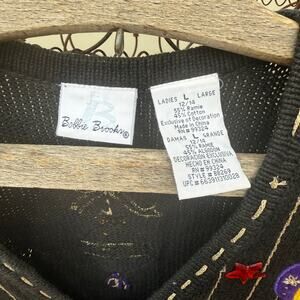 Bobbie Brooks®
LADIES L LARGE
12/14
55% Ramie
45% Cotton
Exclusive of Decoration
Made in China
RN# 99324
DAMAS L GRANDE
12/14
55% RAMIE
45% ALGODON
DECORACION EXCLUSIVA
HECHO EN CHINA
RN# 99324
STYLE # 88269
UPC# 663911310028